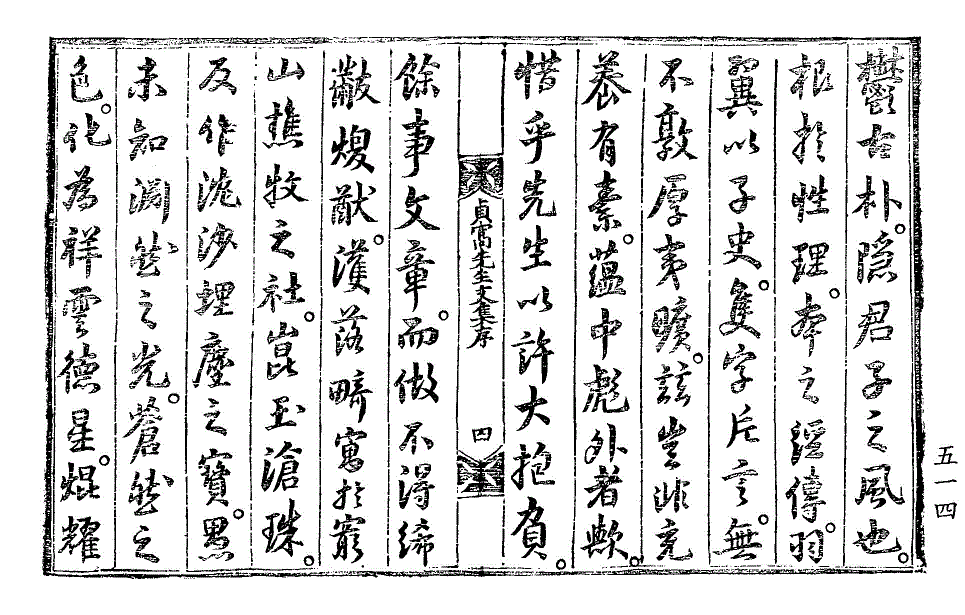 欝古朴。隱君子之風也。
根於性理。本之經傳。羽
翼以子史。隻字片言。無
不敦厚夷曠。玆豈非充
養有素。蘊中彪外者歟。
惜乎先生以許大抱負。
貞窩先生文集序 四
餘事文章。而做不得絺
黻煥猷。濩落畸寓於窮
山樵牧之社。崑玉滄珠。
反作泥沙埋塵之寶。愚
未知淵然之光。蒼然之
色。化爲祥雲德星。焜耀
五一四